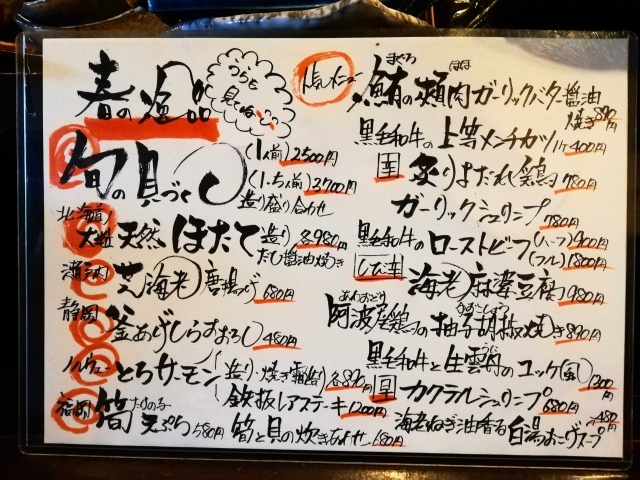 春の逸品
うらも
見てね
旬の貝づくし
(1人前)2500円
(1.5人前)3700円
造り盛り合わせ
北海道
大粒天然ほたて
造り
だし醤油焼き
各980円
瀬戸内
芝海老唐揚げ 680円
静岡
釜あげしらすおろし 480円
ノルウェー
とろサーモン
造り・焼き霜造り 各890円
鉄板レアステーキ 1200円
福岡
筍 たけのこ
天ぷら 580円
筍と貝の炊きあわせ 680円
人気メニュー
まぐろ ほほ
鮪の頬肉ガーリックバター醤油
焼き 890円
黒毛和牛の上等メンチカツ 1ケ400円
炙りよだれ鶏 780円
ガーリックシュリンプ 780円
黒毛和牛のローストビーフ (ハーフ)900円
(フル)1800円
海老麻婆豆腐 980円
あわおどり ゆずこしょう
阿波尾鶏の柚子胡椒焼き 890円
黒毛和牛と生雲丹のユッケ(風) 1300円
カクテルシュリンプ 680円
海老ねぎ油香る白湯おこげスープ 480円